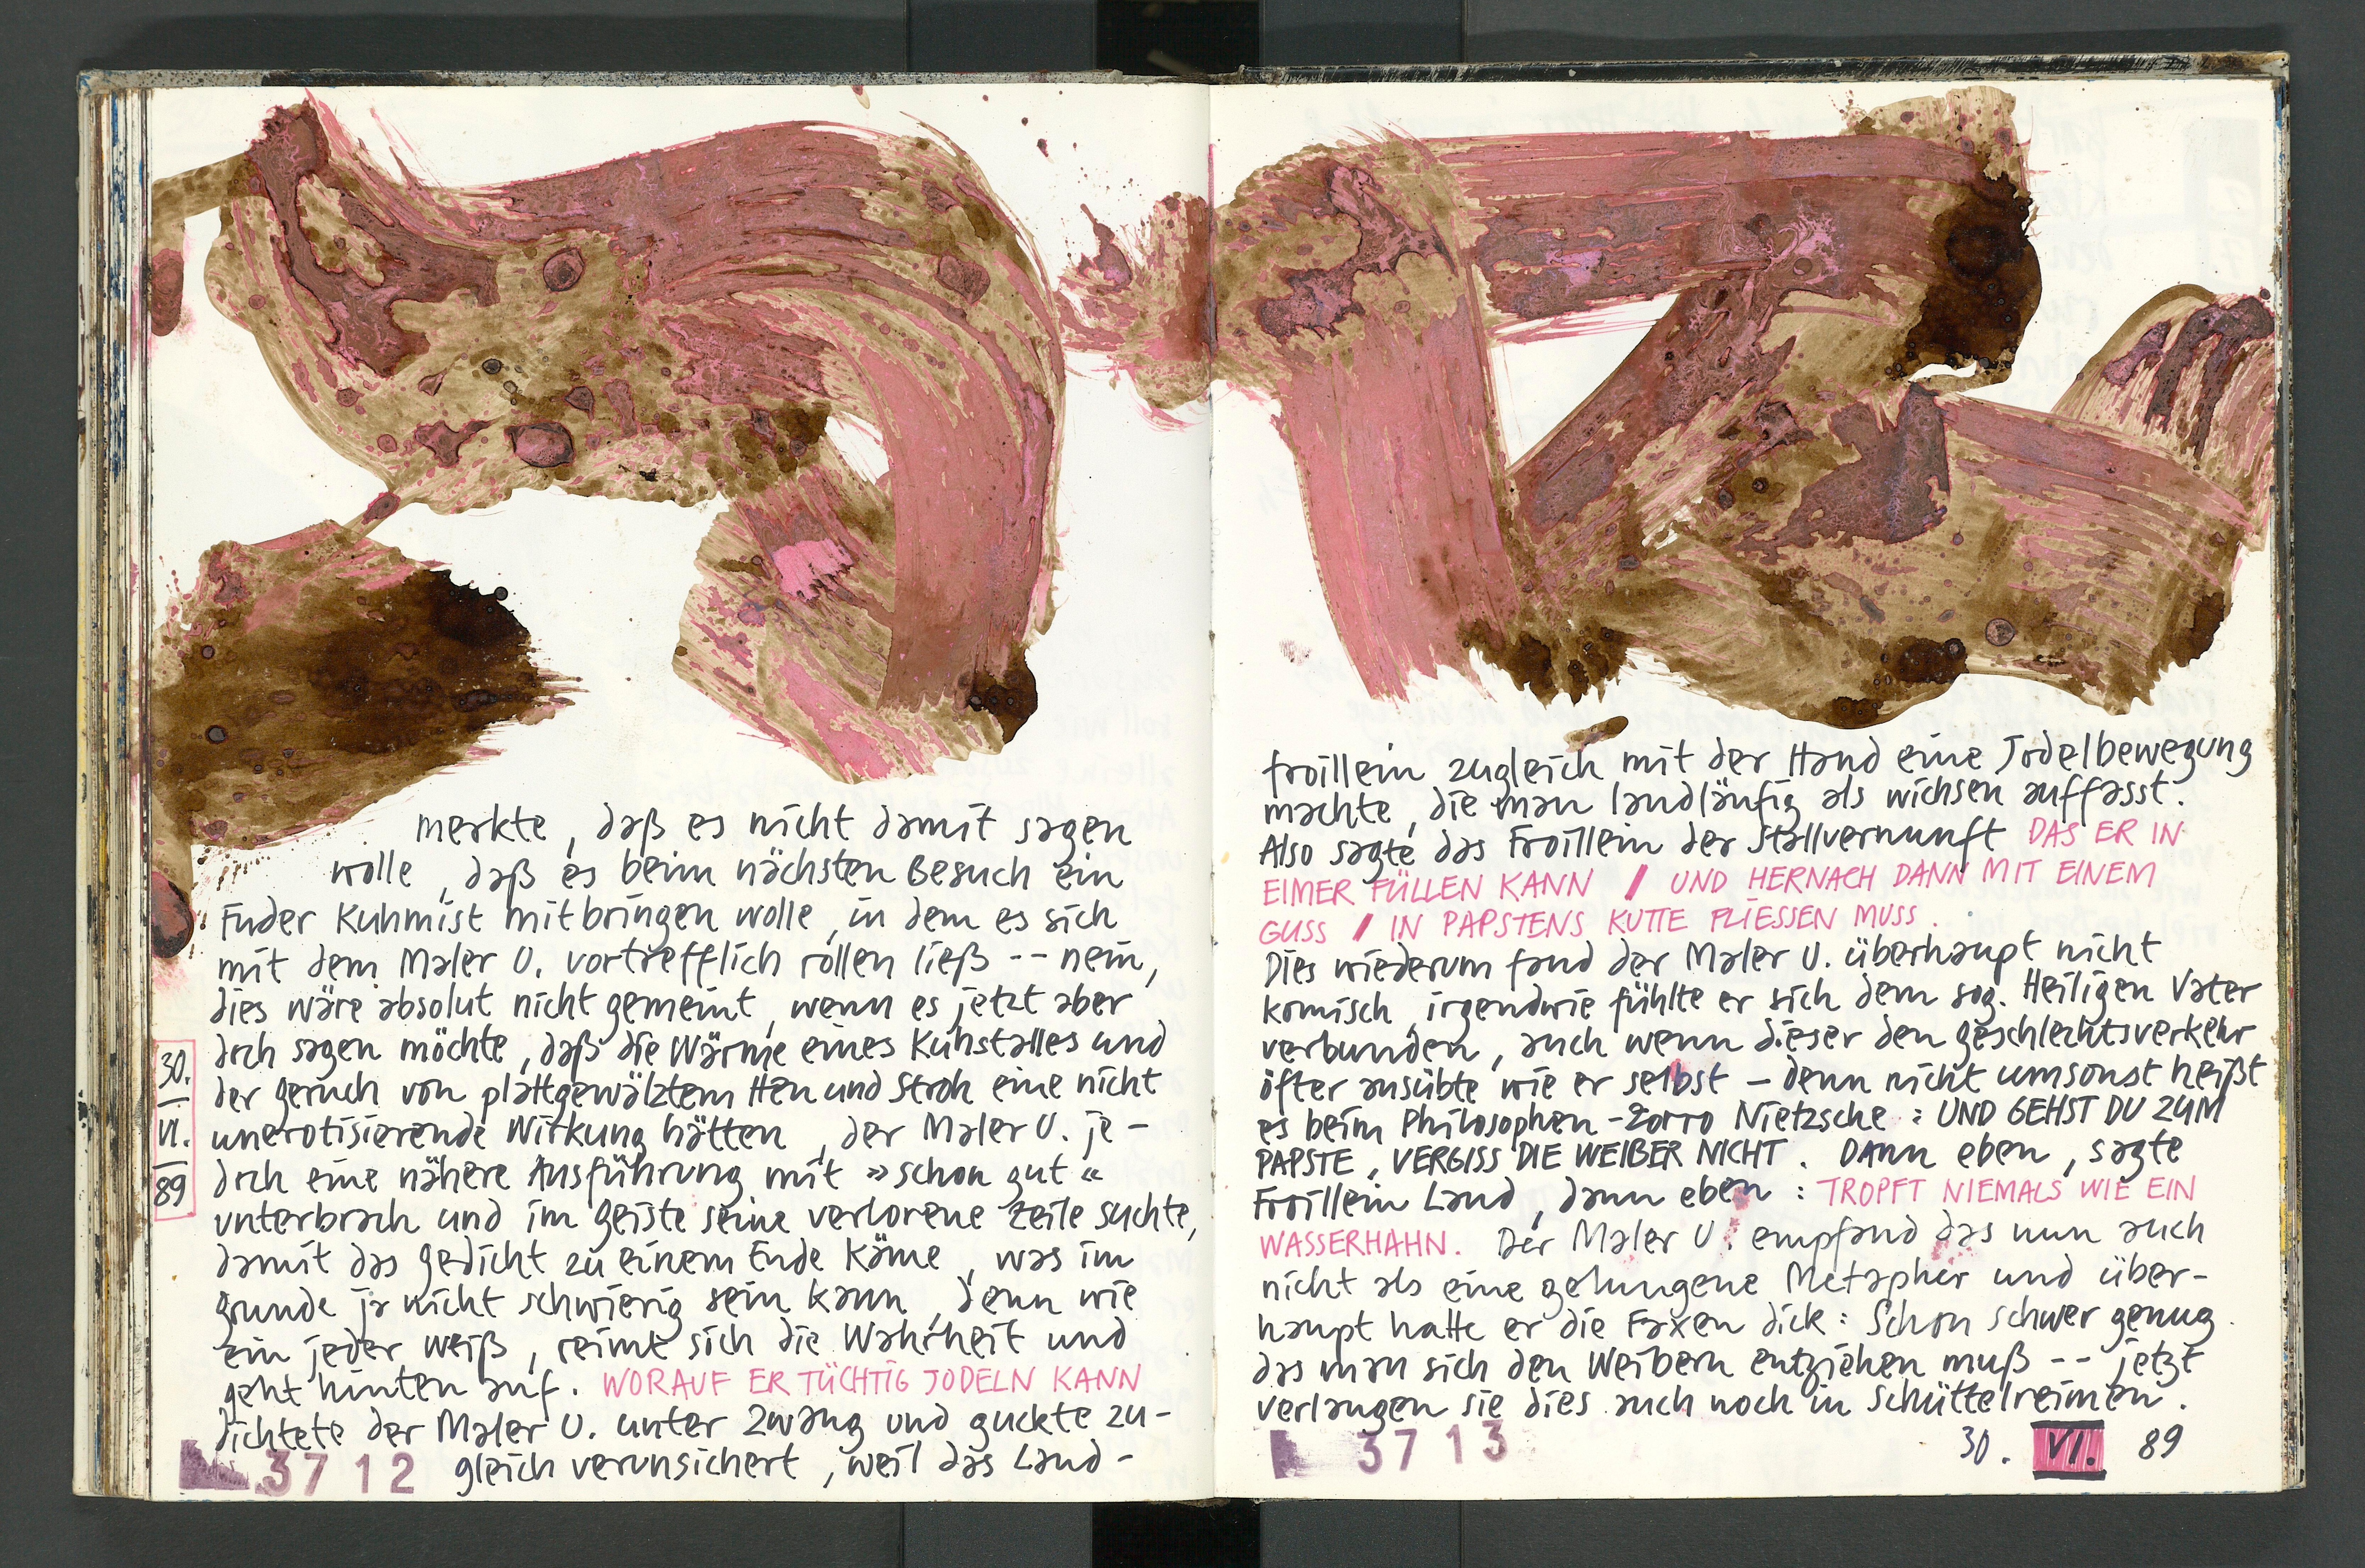 merkte, daß es nicht damit sagen
wolle, daß es beim nächsten Besuch ein
Fuder Kuhmist mitbringen wolle, in dem es sich
mit dem Maler U. vortrefflich rollen ließ -- nein,
dies wäre absolut nicht gemeint, wenn es jetzt aber
doch sagen möchte, daß die Wärme eines Kuhstalles und
der Geruch von plattgewälztem Heu und Stroh eine nicht
unerotisierende Wirkung hätten, der Maler U. je-
doch eine nähere Ausführung mit »schon gut«
unterbrach und im Geiste seine verlorene Zeile suchte,
damit das Gedicht zu einem Ende käme, was im
Grunde ja nicht schwierig sein kann, denn wie
ein jeder weiß, reimt sich die Wahrheit und
geht hinten auf. WORAUF ER TÜCHTIG JODELN KANN
dichtete der Maler U. unter Zwang und guckte zu-
gleich verunsichert, weil das Land-
30.
VI.
89
3712
froillein zugleich mit der Hand eine Jodelbewegung
machte, die man landläufig als wichsen auffasst.
Also sagte das Froillein der Stallvernunft DAS ER IN
EIMER FÜLLEN KANN / UND HERNACH DANN MIT EINEM
GUSS / IN PAPSTENS KUTTE FLIESSEN MUSS.
Dies wiederum fand der Maler U. überhaupt nicht
komisch, irgendwie fühlte er sich dem sog. Heiligen Vater
verbunden, auch wenn dieser den Geschlechtsverkehr
öfter ausübte wie er selbst – denn nicht umsonst heißt
es beim Philosophen-Zorro Nietzsche: UND GEHST DU ZUM
PAPSTE, VERGISS DIE WEIBER NICHT. Dann eben, sagte
Froillein Land, dann eben: TROPFT NIEMALS WIE EIN
WASSERHAHN. Der Maler U. empfand das nun auch
nicht als eine gelungene Metapher und über-
haupt hatte er die Faxen dick: Schon schwer genug
das man sich den Weibern entziehen muß -- jetzt
verlangen sie dies auch noch in Schüttelreimen.
3713
30. VI. 89